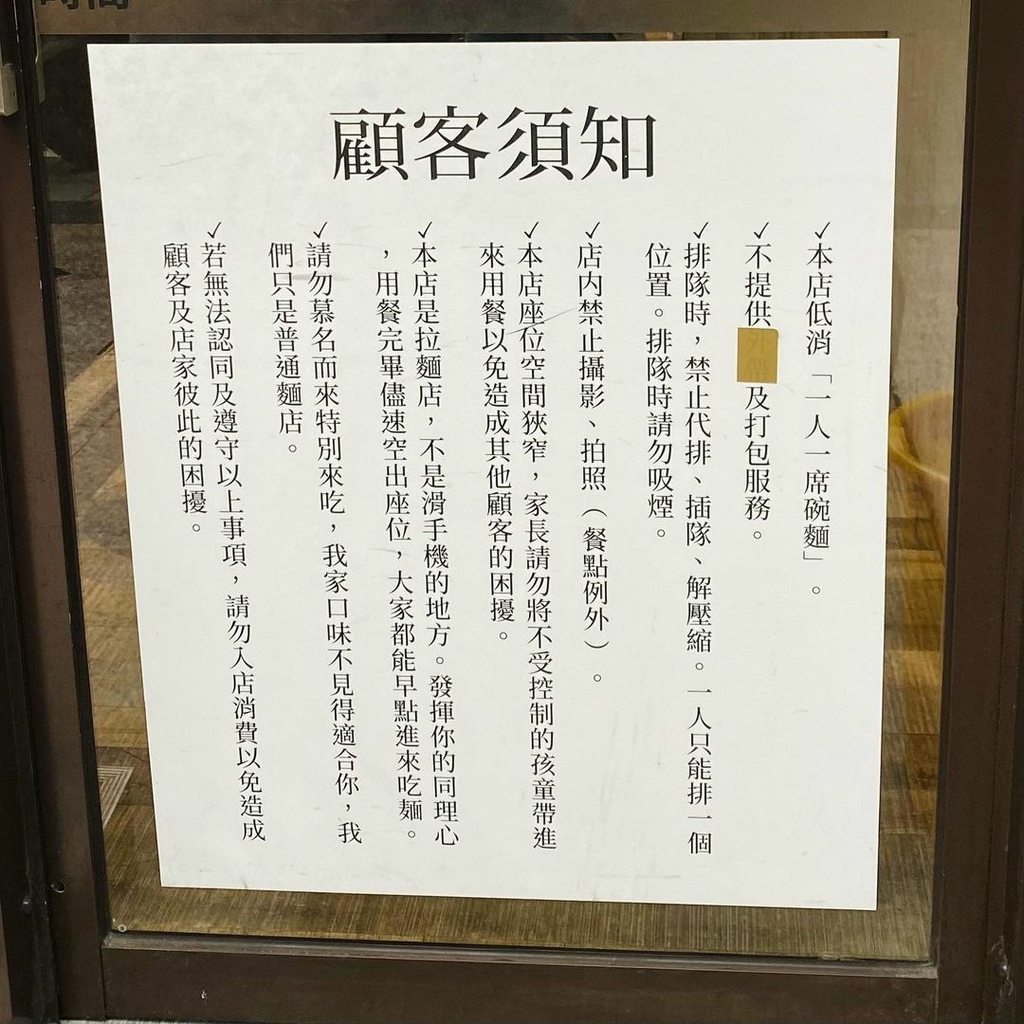 顧客須知
✓本店低消「一人一席碗麵」。
✓不提供及打包服務。
✓排隊時，禁止代排、插隊、解壓縮。一人只能排一個
位置。排隊時請勿吸煙。
✓店內禁止攝影、拍照（餐點例外）。
✓本店座位空間狹窄，家長請勿將不受控制的孩童帶進
來用餐以免造成其他顧客的困擾。
✓本店是拉麵店，不是滑手機的地方。發揮你的同理心
，用餐完畢儘速空出座位，大家都能早點進來吃麺。
✓請勿慕名而來特別來吃，我家口味不見得適合你，我
們只是普通麵店。
✓若無法認同及遵守以上事項，請勿入店消費以免造成
顧客及店家彼此的困擾。